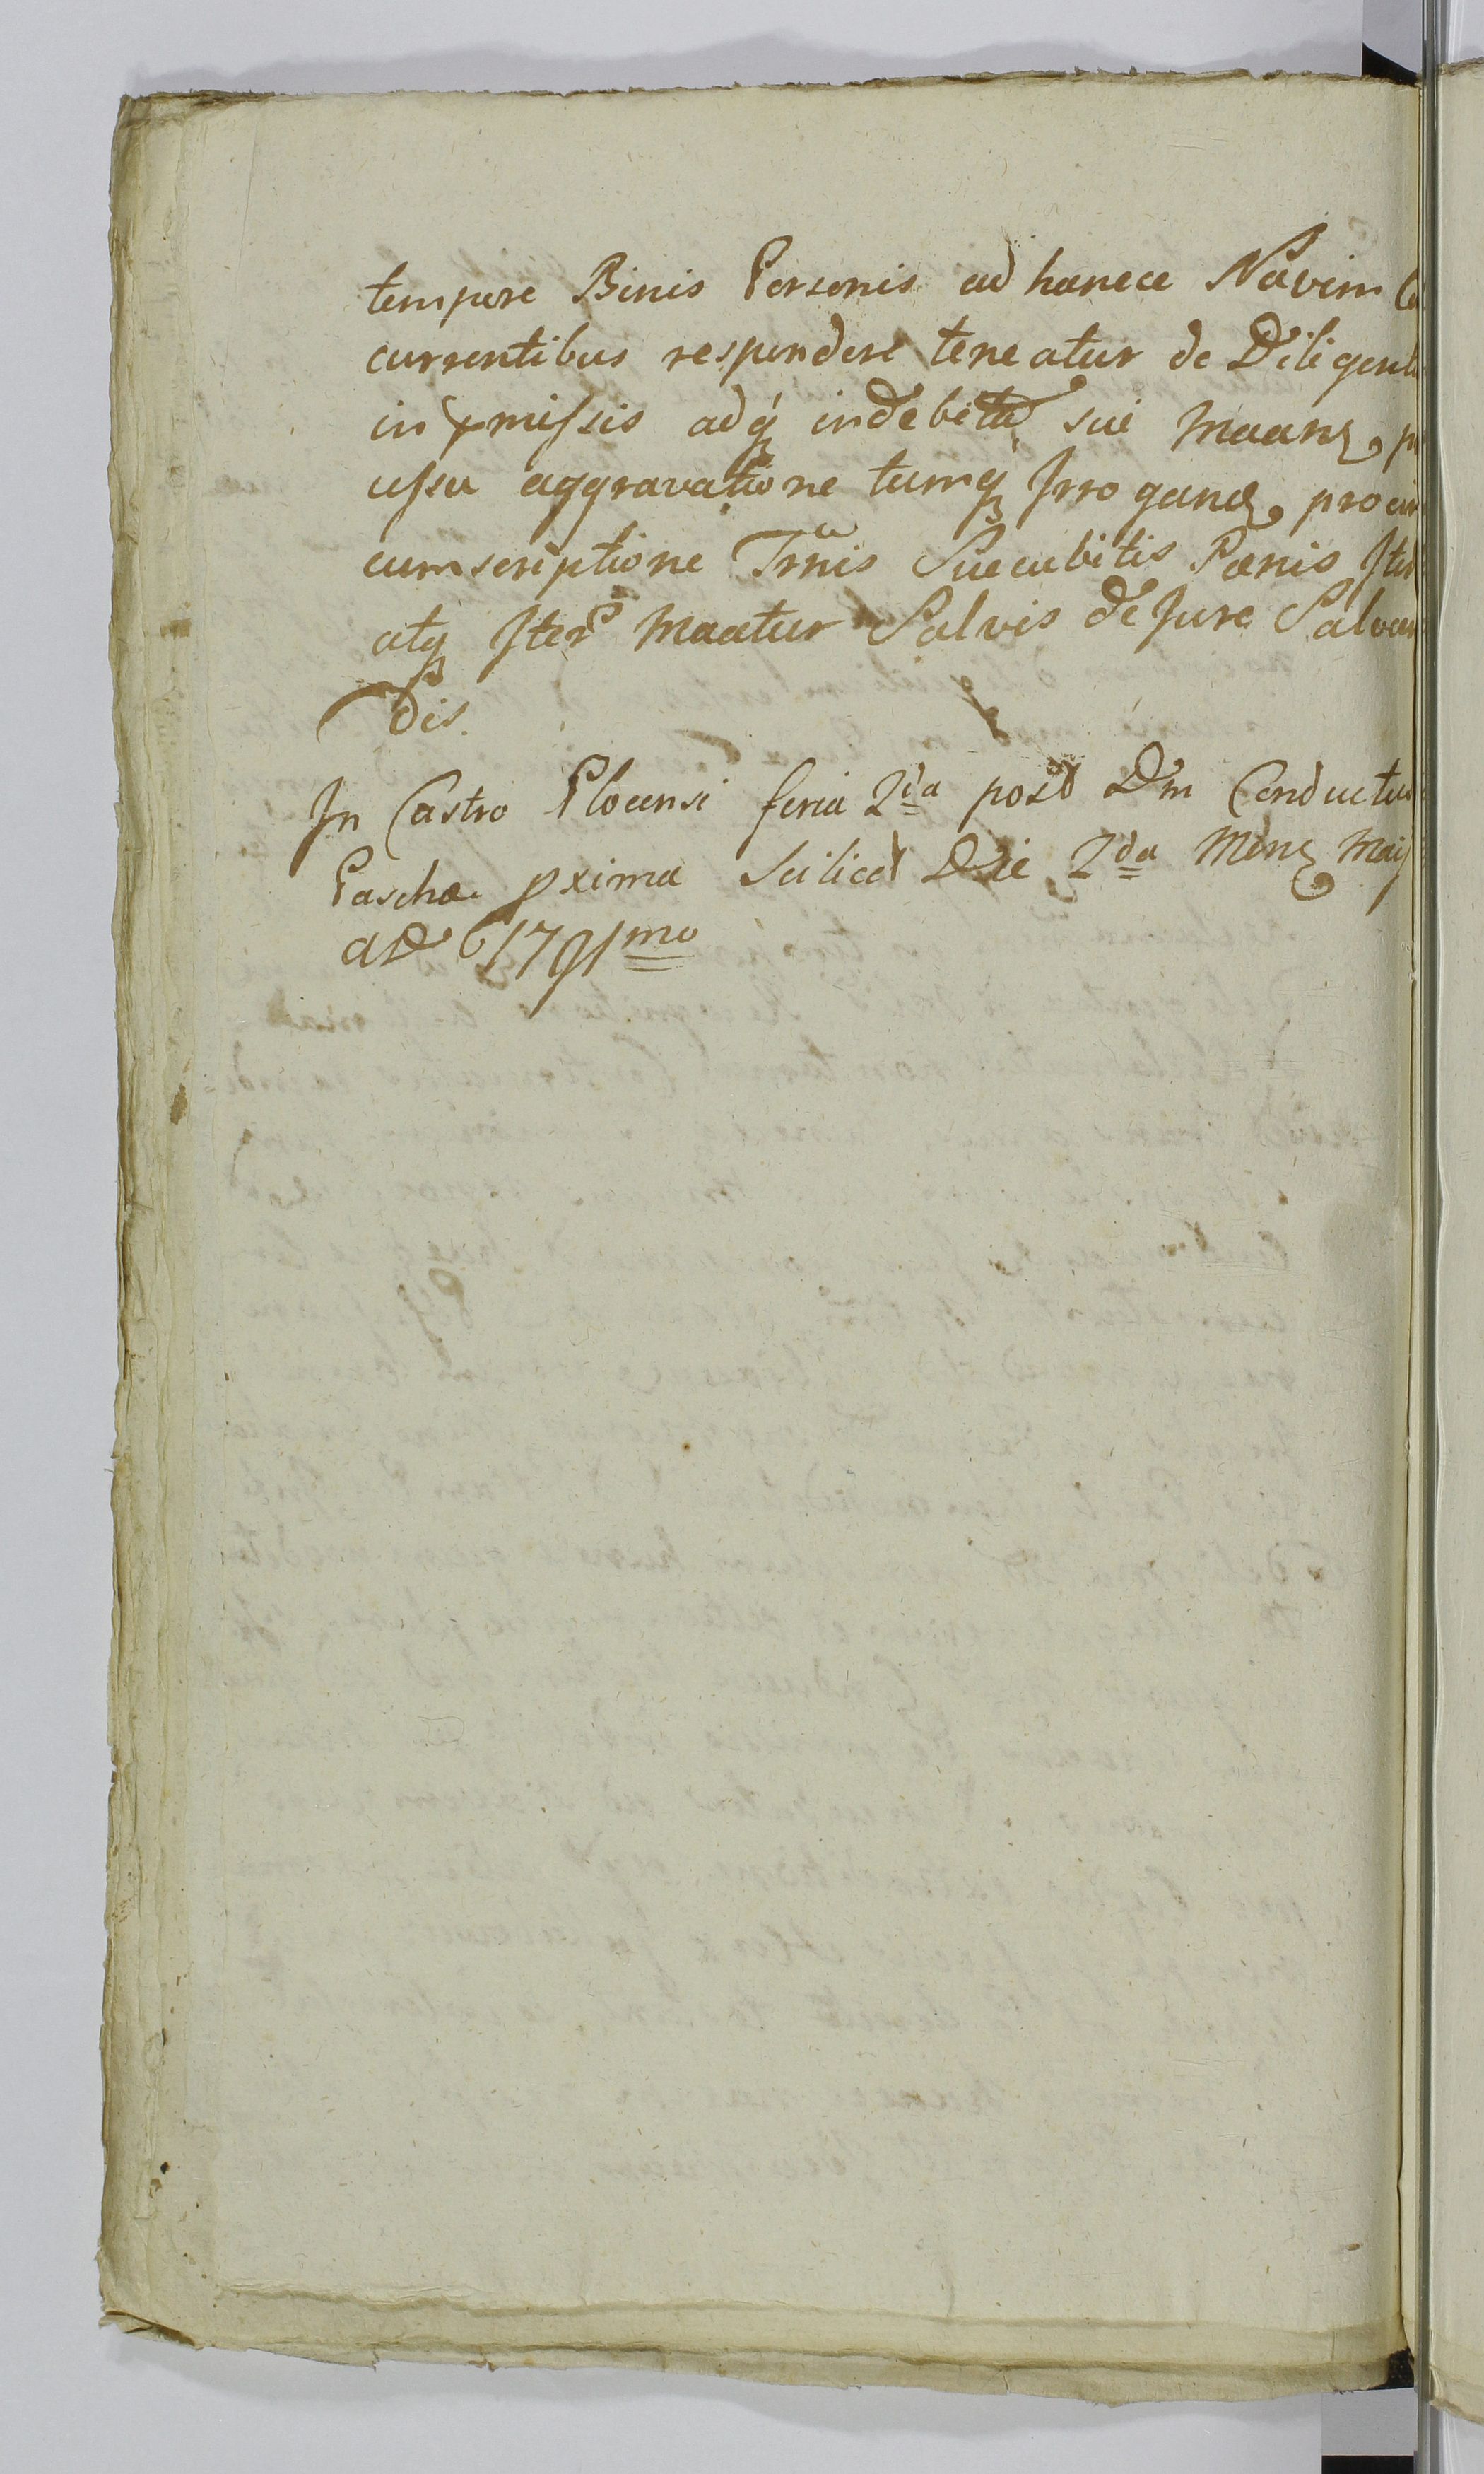 tempore Binis Personis ad hancce Navim Co
currentibus respondere teneatur de Diligentia
in pmissis adq indebita sui Maans p
ussu aggravatione tumq Irrogans pro cir
cumscriptione Trnis Succubitis Pœnis Iter
atq Iter Maatur Salvis de Jure Salvan
dis.
In Castro Plocensi feria 2da post Dm Conductus
Paschæ pxima scilicet Die 2da Mens Maij
AD 1791mo